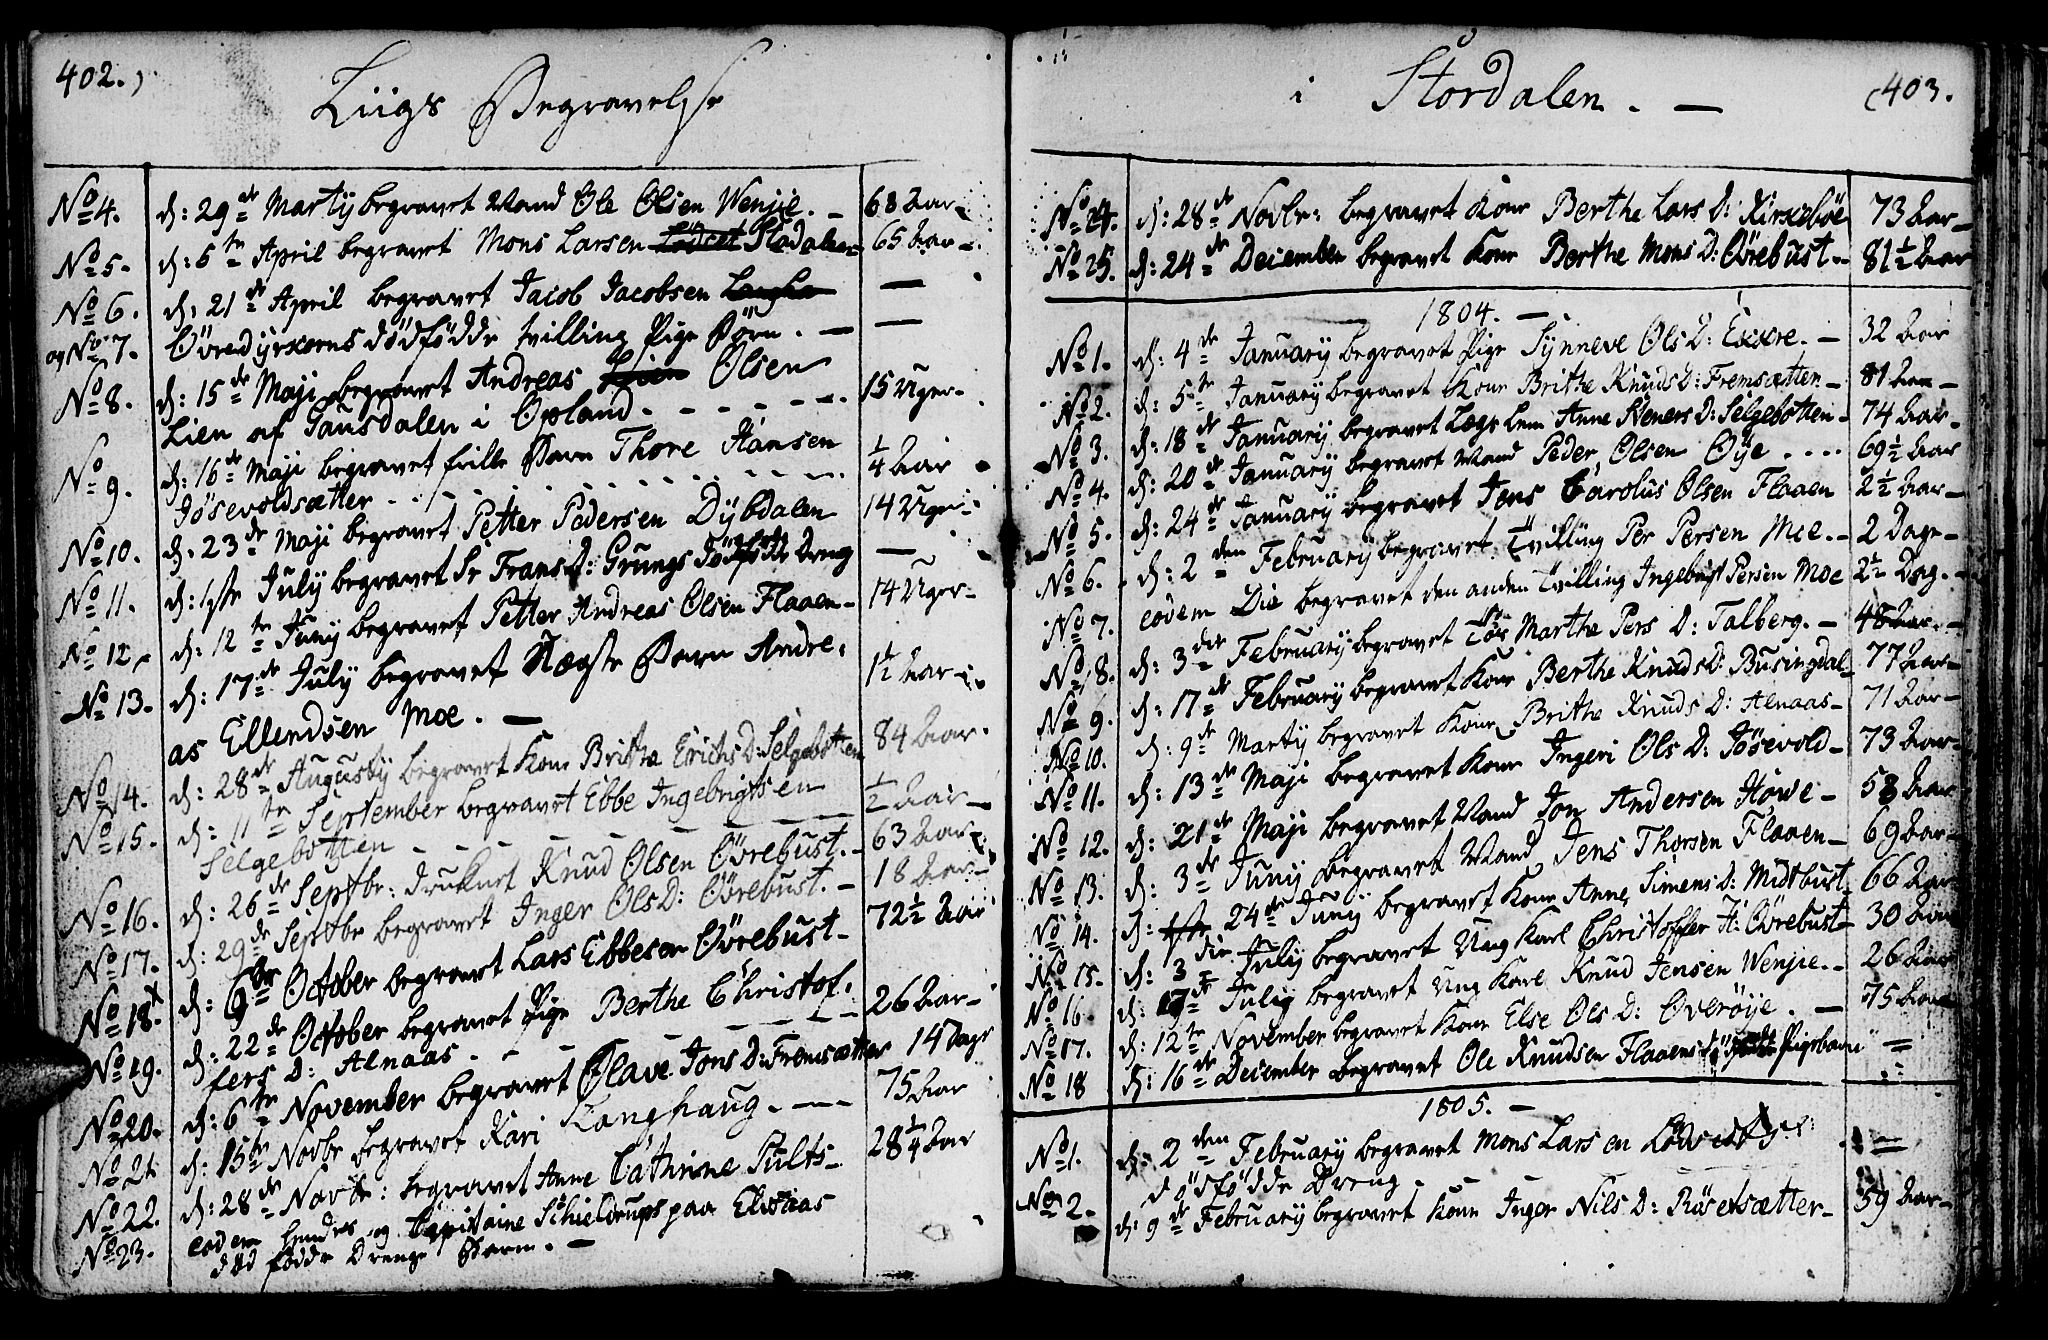 402.)
Liigs Begravelse
No 4. d: 29de Martÿ begravet Mand Ole Olsen Wenjie. — 68 Aar.
No 5. d: 5te April begravet Mons Larsen Lödcet Stodalen 65 Aar.
No 6. d: 21de April begravet Jacob Jacobsen —
og No 7. Övredÿrkorns dödfödde tvilling Pige Börn. — —
No 8. d: 15de Maji begravet Andreas Lien Olsen
Lien af Gausdalen i Opland. 15 Uger
No 9. d: 16de Maji begravet frille Barn Thore Hansen 1/4 Aar
Jösevoldsætter
No 10. d: 23de Maji begravet Petter Pedersen Dÿbdalen 14 Uger
No 11. d: 1ste Julÿ begravet Sr Frans D: Grungs dödfödde Dreng —
No 12. d: 12te Junÿ begravet Petter Andreas Olsen Flaaen 14 Uger
No 13. d: 17de Julÿ begravet Barn Andre-
as Ellendsen Moe. — 1 1/2 Aar
No 14. d: 28de Augustÿ begravet Kone Brithe Erichs D: Selgebotten 84 Aar.
No 15. d: 11te September begravet Ebbe Ingebrigtsen
Selgebotten 1/2 Aar
No 16. d: 26de Septbr: druknet Knud Olsen Övrebust. 63 Aar
No 17. d: 29de Septbr begravet Inger Ols D: Övrebust. — 18 Aar
No 18. d: 6te October begravet Lars Ebbesen Övrebust 72 1/2 Aar
No 19. d: 22de October begravet Pige Berthe Christof-
fers D: Alnaas 26 Aar
No 20. d: 6te November begravet Olave Jons D: Fremsætter 14 Dage
No 21 d: 15te Novbr begravet Kari Langhaug. 75 Aar
No 22. d: 28de Novbr: begravet Anne Cathrine Sults 28 1/4 Aar
No 23. eodem hendes og Capitaine Schieldrups paa Elisæas
død fødde Drenge Barn. —
i Stordalen. — (403.
No 24. d: 28de Novbr: begravet Kone Berthe Lars D: Kirkebøe 73 Aar
No 25. d: 24de December begravet Kone Berthe Mons D: Övrebust 81 1/2 Aar
1804. —
No 1. d: 4de Januarÿ begravet Pige Sÿnneve Ols D: Exxre. — 32 Aar
No 2. d: 5te Januarÿ begravet Kone Brithe Knuds D: Fremsætter 81 Aar
No 3. d: 18de Januarÿ begravet Lægs Lem Anne Steners D: Selgebotten 74 Aar.
No 4. d: 20de Januarÿ begravet Mand Peder Olsen Øÿe 69 1/2 Aar
No 5. d: 24de Januarÿ begravet Jens Carolus Olsen Flaaen 2 1/2 Aar
No 6. d: 2den Februarÿ begravet Tvilling Per Persen Moe. 2 Dage
No 7. eodem Die begravet den anden Tvilling Ingebrigt Persen Moe 2 1/2 Dag.
No 8. d: 3die Februarÿ begravet Marthe Pers D: Talberg. — 48 Aar.
No 9. d: 17de Februarÿ begravet Kone Berthe Knuds D: Busingdal 77 Aar
No 10. d: 9de Martÿ begravet Kone Brithe Knuds D: Alnaas 71 Aar
No 11. d: 13de Maji begravet Kone Ingeri Ols D: Jösevold 73 Aar
No 12. d: 21de Maji begravet Mand Jon Andersen Howe 58 Aar
No 13. d: 3die Junÿ begravet Mand Jens Thorsen Flaaen 69 Aar
No 14. d: 24de Junÿ begravet Kone Anne Simens D: Midtbust 66 Aar
No 15. d: 3die Julÿ begravet Ung Karl Christoffer H: Övrebust 30 Aar
No 16 d: 17de Julÿ begravet Ung Karl Knud Jensen Wenjie. 26 Aar
No 17. d: 12te November begravet Kone Else Ols D: Overøÿe. — 75 Aar
No 18 d: 16de December begravet Ole Knudsen Flaaens Pigebarn —
1805. —
No 1. d: 2den Februarÿ begravet Mons Larsen
dödfödde Dreng. —
No 2. d: 9de Februarÿ begravet Kone Inger Nils D: Rösetsætter 59 Aar